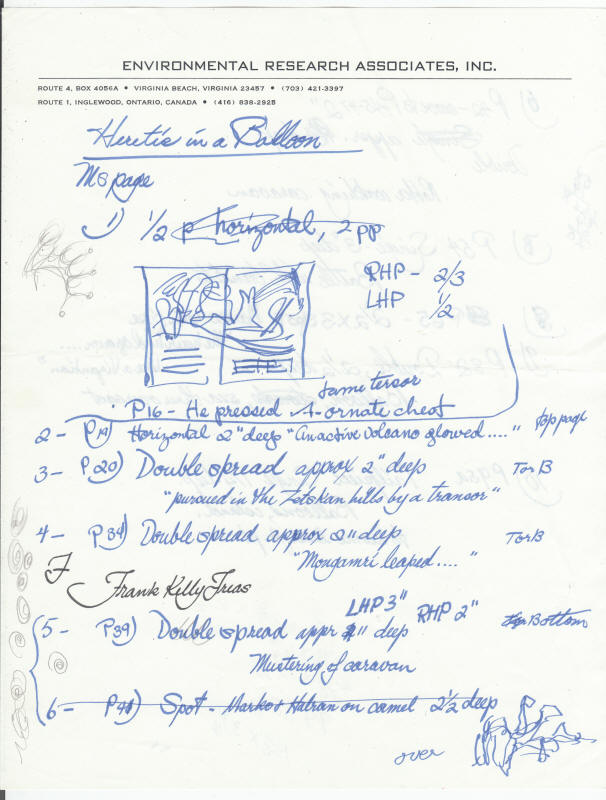 ENVIRONMENTAL RESEARCH ASSOCIATES, INC.
ROUTE 4, BOX 4056A • VIRGINIA BEACH, VIRGINIA 23457 • (703) 421-3397
ROUTE 1, INGLEWOOD, ONTARIO, CANADA • (416) 838-2925
Heretic in a Balloon
MS page
1) 1/2 p horizontal, 2 pp
RHP - 2/3
LHP 1/2
P16 - He pressed A-ornate chest
2 - P19) Horizontal 2" deep "An active volcano glowed...." top page
3 - P20) Double spread approx 2" deep T or B
"pursued in the hills by a
4 - P34) Double spread approx 2" deep T or B
leaped...."
F
Frank Kelly Freas
LHP 3" RHP 2"
5 - P39) Double spread appr 2" deep Bottom
Mustering of caravan
6 - Spot - on camel 2 1/2 deep
over